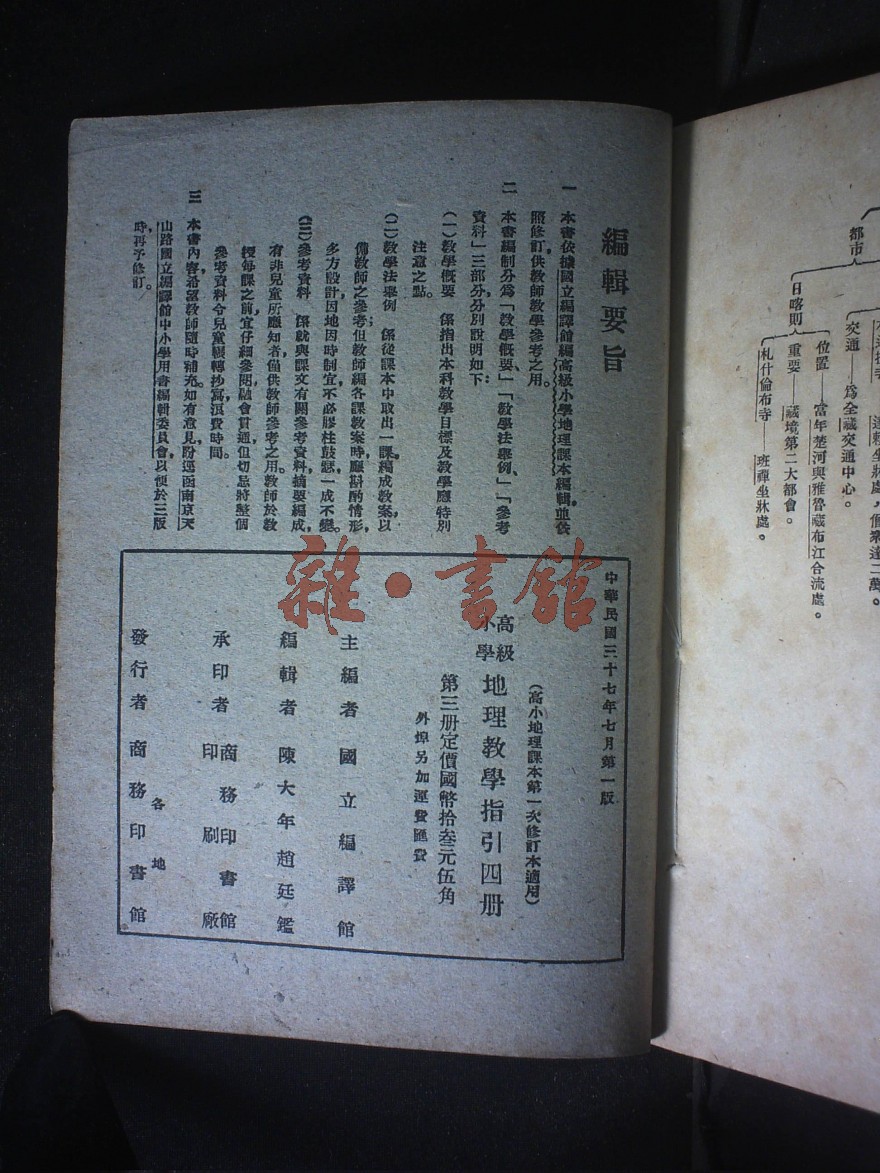 都市
日喀則
位置——當年楚河與雅魯藏布江合流處。
重要——藏境第二大都會。
交通——爲全藏交通中心。
札什倫布寺——班禪坐牀處。
編輯要旨
一 本書依據國立編譯館編高級小學地理課本編輯，並依
照修訂供教師教學參考之用。
二 本書編制分爲「教學概要」「教學法舉例」、「參考
資料」三部分分別說明如下：
（一）教學概要 係指出本科教學目標及教學應特別
注意之點。
（二）教學法舉例 係從課本中取出一課，編成教案，以
備教師之參考；但教師編各課教案時，應斟酌情形，
多方設計，因地因時制宜，不必膠柱鼓瑟，一成不變。
（三）參考資料 係就與課文有關參考資料，摘要編成，
有非兒童所應知者，僅供教師參考之用。教師於教
授每課之前，宜仔細參閱，融會貫通，但切忌將整個
參考資料令兒童輾轉抄寫，浪費時間。
三 本書內容，希望教師隨時補充。如有意見，盼逕函南京天
山路國立編譯館中小學用書編輯委員會，以便於三版
時，再予修訂。
中華民國三十七年七月第一版
（高小地理課本第一次修訂本適用）
高級小學 地理教學指引四册
第三册定價國幣拾叁元伍角
外埠另加運費匯費
主編者 國立編譯館
編輯者 陳大年 趙廷鑑
承印者 商務印書館印刷廠
發行者 各地商務印書館
雜·書館